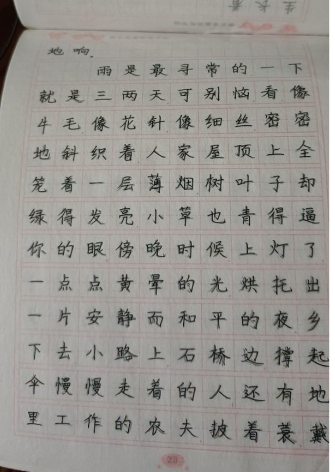 生长着
地响.
雨是最寻常的一下
就是三两天可别恼看像
牛毛像花针像细丝密密
地斜织着人家屋顶上全
笼着一层薄烟树叶子却
绿得发亮小草也青得逼
你的眼傍晚时候上灯了
一点点黄晕的光烘托出
一片安静而和平的夜乡
下去小路上石桥边撑起
伞慢慢走着的人还有地
里工作的农夫披着蓑戴
23